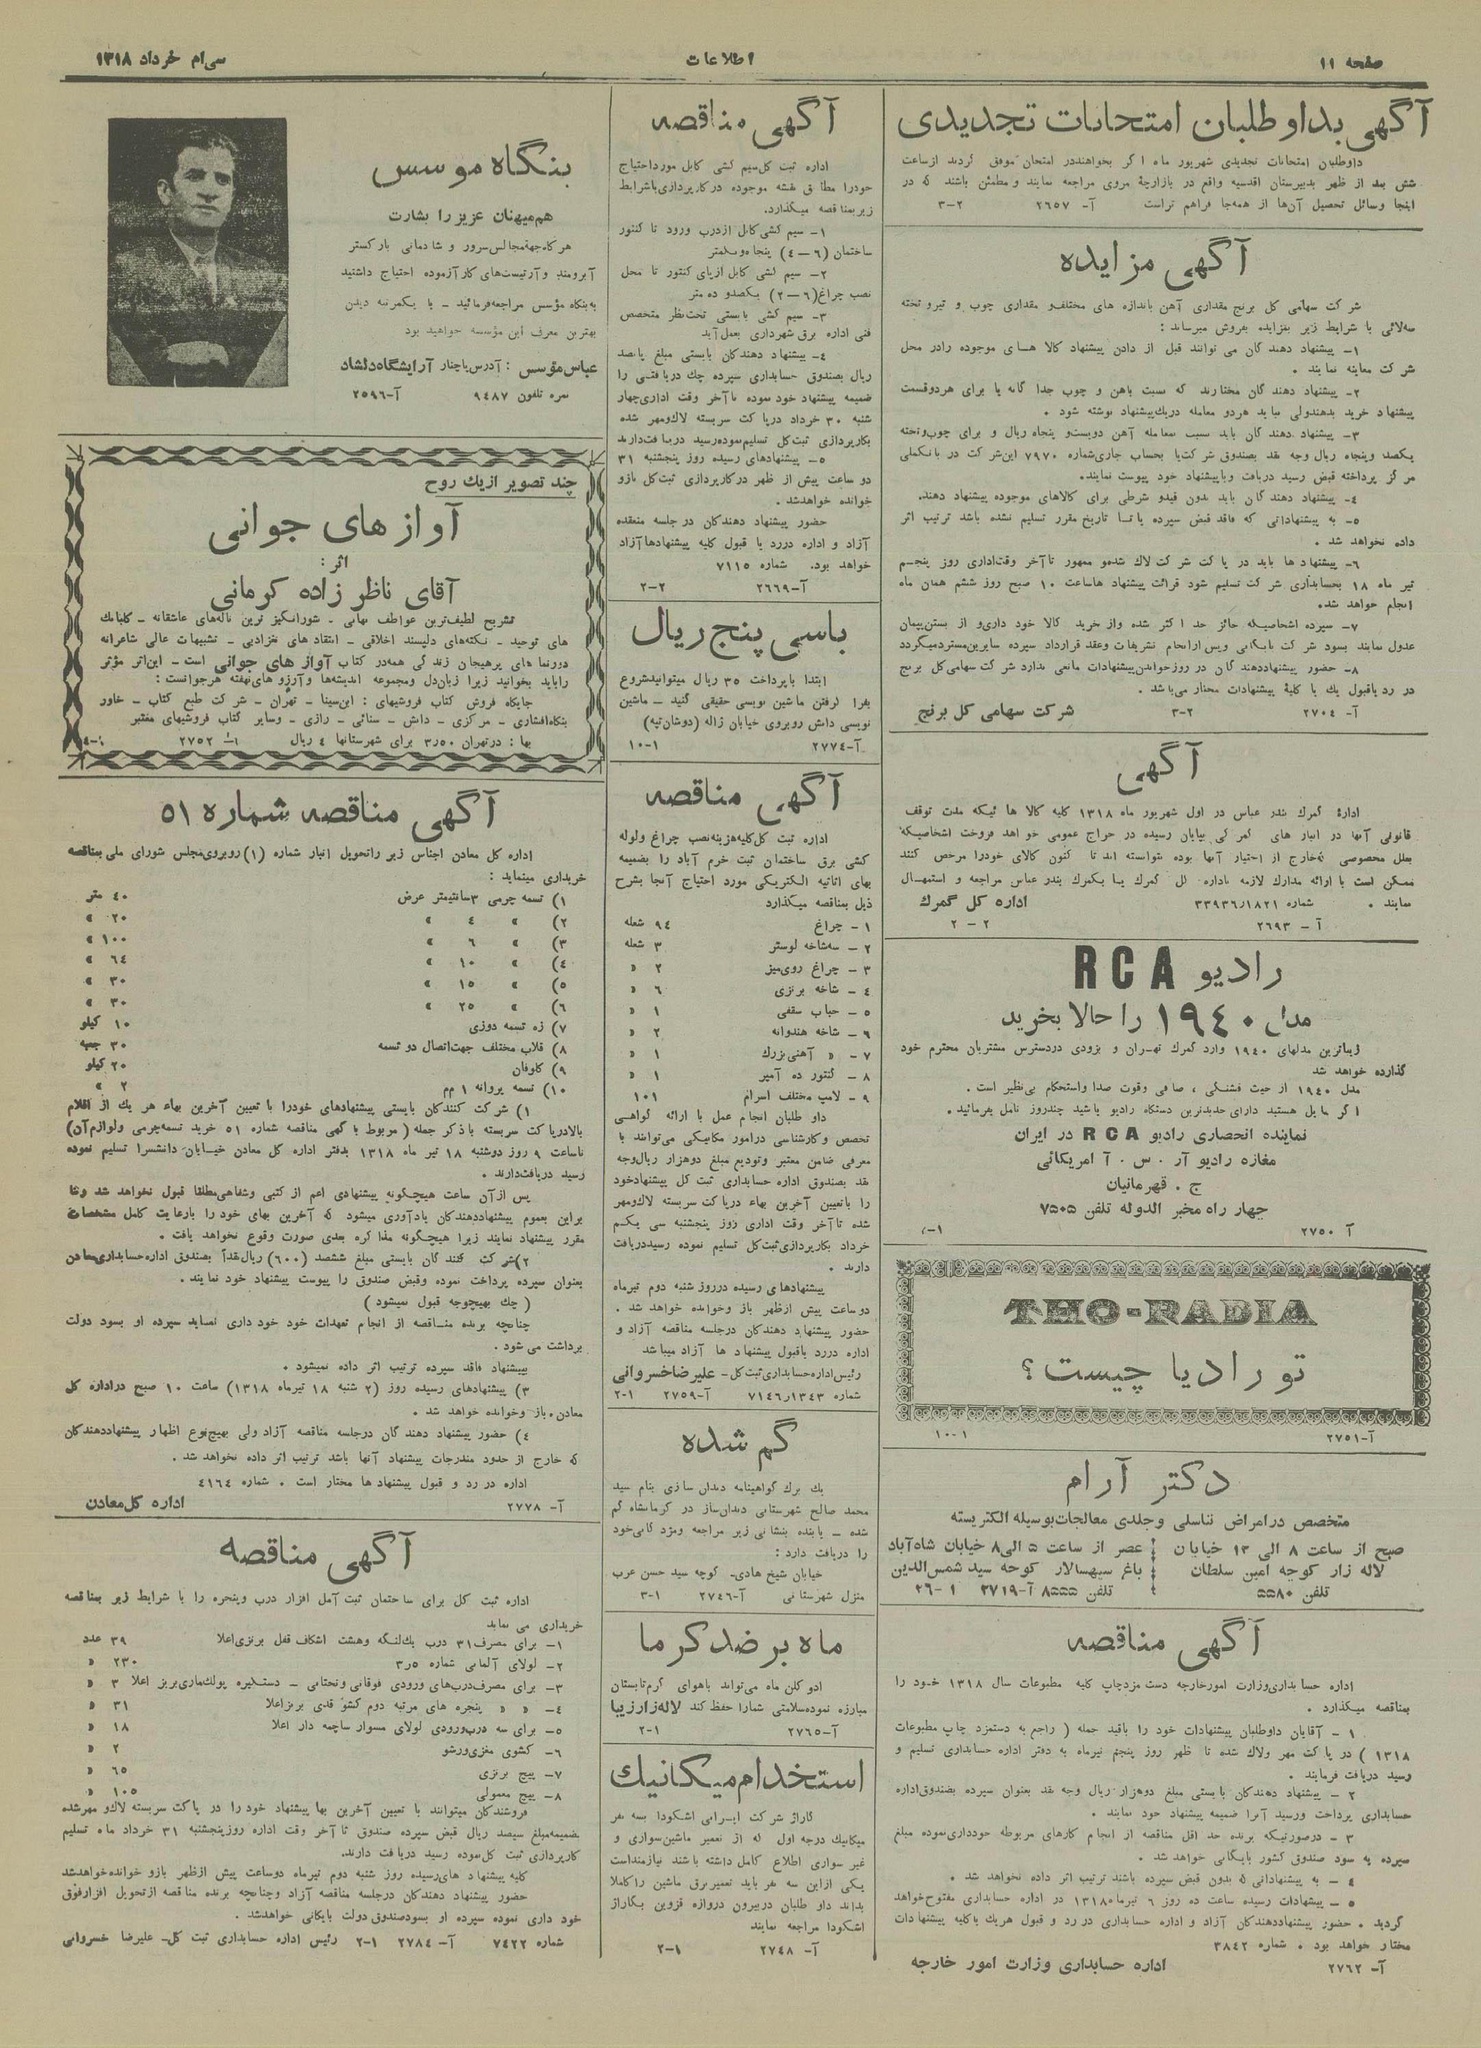 صفحه ۱۱
اطلاعات
سی‌ام خرداد ۱۳۱۸
آگهی بداوطلبان امتحانات تجدیدی
داوطلبان امتحانات تجدیدی شهریور ماه اگر بخواهند در امتحان موفق گردند از ساعت
شش بعد از ظهر بدبیرستان اقدسیه واقع در بازارچهٔ مروی مراجعه نمایند و مطمئن باشند که در
اینجا وسائل تحصیل آن‌ها از همه‌جا فراهم تر است آ- ۲۶۵۷ ۲-۳
آگهی مزایده
شرکت سهامی کل برنج مقداری آهن باندازه های مختلف و مقداری چوب و تیر و تخته
با شرایط زیر بمزایده بفروش میرساند :
۱- پیشنهاد دهندگان می توانند قبل از دادن پیشنهاد کالا های موجوده را در محل
شرکت معاینه نمایند .
۲- پیشنهاد دهندگان مختارند که نسبت بآهن و چوب جدا گانه یا برای هر دو قسمت
پیشنهاد خرید بدهند ولی نباید هر دو معامله در یک پیشنهاد نوشته شود .
۳- پیشنهاد دهندگان باید نسبت بمعامله آهن دویست و پنجاه ریال و برای چوب و تخته
یکصد و پنجاه ریال وجه نقد بصندوق شرکت یا بحساب جاری شماره ۷۹۷۰ این شرکت در بانک ملی
مرکز پرداخته قبض رسید دریافت و با پیشنهاد خود پیوست نمایند.
۴- پیشنهاد دهندگان باید بدون قید و شرطی برای کالاهای موجوده پیشنهاد دهند.
۵- به پیشنهاداتی که فاقد قبض سپرده یا تا تاریخ مقرر تسلیم نشده باشد ترتیب اثر
داده نخواهد شد .
۶- پیشنهاد ها باید در پاکت شرکت لاک شده و ممهور تا آخر وقت اداری روز پنجم
تیر ماه ۱۸ بحسابداری شرکت تسلیم شود قرائت پیشنهاد ها ساعت ۱۰ صبح روز ششم همان ماه
انجام خواهد شد.
۷- سپرده اشخاصیکه حائز حد اکثر شده و از خرید کالا خود داری و از بستن پیمان
عدول نمایند بسود شرکت بایگانی و پس از انجام تشریفات و عقد قرارداد سپرده سایرین مسترد میگردد
۸- حضور پیشنهاد دهندگان در روز خواندن پیشنهادات مانعی ندارد شرکت سهامی کل برنج
در رد یا قبول یک یا کلیهٔ پیشنهادات مختار می‌باشد .
آ- ۲۷۰۴ ۲-۳ شرکت سهامی کل برنج
آگهی
ادارهٔ گمرک بندر عباس در اول شهریور ماه ۱۳۱۸ کلیه کالا هائیکه مدت توقف
قانونی آنها در انبار های گمرکی بپایان رسیده در حراج عمومی خواهد فروخت اشخاصیکه
بعلل مخصوصی که خارج از اختیار آنها بوده نتوانسته اند تا کنون کالای خود را مرخص کنند
ممکن است با ارائه مدارک لازمه باداره کل گمرک یا بگمرک بندر عباس مراجعه و استمهال
نمایند . شماره ۳۳۹۳۶/۱۸۲۱ اداره کل گمرک
آ - ۲۶۹۳ ۲ - ۲
رادیو RCA
مدل ۱۹۴۰ را حالا بخرید
زیباترین مدلهای ۱۹۴۰ وارد گمرک تهران و بزودی در دسترس مشتریان محترم خود
گذارده خواهد شد
مدل ۱۹۴۰ از حیث قشنگی ، صافی و قوت صدا و استحکام بی‌نظیر است .
اگر مایل هستید دارای جدیدترین دستگاه رادیو باشید چند روز تامل بفرمائید .
نماینده انحصاری رادیو RCA در ایران
مغازه رادیو آر . س . آ امریکائی
ج . قهرمانیان
چهار راه مخبر الدوله تلفن ۷۵۰۵
آ ۲۷۵۰
THO-RADIA
تو رادیا چیست ؟
آ-۲۷۵۱ ۱-۱۰
دکتر آرام
متخصص در امراض تناسلی و جلدی معالجات بوسیله الکتریسته
صبح از ساعت ۸ الی ۱۳ خیابان
لاله زار کوچه امین سلطان
تلفن ۵۵۸۰
عصر از ساعت ۵ الی ۸ خیابان شاه‌آباد
باغ سپهسالار کوچه سید شمس‌الدین
تلفن ۸۵۵۵ آ-۲۷۱۹ ۱-۲۶
آگهی مناقصه
اداره حسابداری وزارت امور خارجه دست مزد چاپ کلیه مطبوعات سال ۱۳۱۸ خود را
بمناقصه میگذارد .
۱ - آقایان داوطلبان پیشنهادات خود را با قید جمله ( راجع به دستمزد چاپ مطبوعات
۱۳۱۸ ) در پاکت مهر و لاک شده تا ظهر روز پنجم تیرماه به دفتر اداره حسابداری تسلیم و
رسید دریافت فرمایند .
۲ - پیشنهاد دهندگان بایستی مبلغ دو هزار ریال وجه نقد بعنوان سپرده بصندوق اداره
حسابداری پرداخت و رسید آنرا ضمیمه پیشنهاد خود نمایند .
۳ - در صورتیکه برنده حد اقل مناقصه از انجام کارهای مربوطه خودداری نموده مبلغ
سپرده به سود صندوق کشور بایگانی خواهد شد .
۴ - به پیشنهاداتی که بدون قبض سپرده باشند ترتیب اثر داده نخواهد شد .
۵ - پیشنهادات رسیده ساعت ده روز ۶ تیرماه ۱۳۱۸ در اداره حسابداری مفتوح خواهد
گردید . حضور پیشنهاد دهندگان آزاد و اداره حسابداری در رد و قبول هر یک یا کلیه پیشنهادات
مختار خواهد بود . شماره ۳۸۴۲
آ- ۲۷۶۲ اداره حسابداری وزارت امور خارجه
آگهی مناقصه
اداره ثبت کل سیم کشی کابل مورد احتیاج
خود را مطابق نقشه موجوده در کارپردازی با شرایط
زیر بمناقصه میگذارد.
۱- سیم کشی کابل از درب ورود تا کنتور
ساختمان (۶-۴) پنجاه و سه متر
۲- سیم کشی کابل از پای کنتور تا محل
نصب چراغ (۶-۲) یکصد و ده متر
۳- سیم کشی بایستی تحت نظر متخصص
فنی اداره برق شهرداری بعمل آید
۴- پیشنهاد دهندگان بایستی مبلغ پانصد
ریال بصندوق حسابداری سپرده چک دریافتی را
ضمیمه پیشنهاد خود نموده تا آخر وقت اداری چهار
شنبه ۳۰ خرداد در پاکت سربسته لاک و مهر شده
بکارپردازی ثبت کل تسلیم نموده رسید دریافت دارند
۵- پیشنهادهای رسیده روز پنجشنبه ۳۱
دو ساعت پیش از ظهر در کارپردازی ثبت کل باز و
خوانده خواهد شد.
حضور پیشنهاد دهندگان در جلسه منعقده
آزاد و اداره در رد یا قبول کلیه پیشنهادها آزاد
خواهد بود. شماره ۷۱۱۵
آ-۲۶۶۹ ۲-۲
با سی پنج ریال
ابتدا با پرداخت ۳۵ ریال میتوانید شروع
بفرا گرفتن ماشین نویسی حقیقی کنید - ماشین
نویسی دانش روبروی خیابان ژاله (دوشان‌تپه)
آ-۲۷۷۴ ۱-۱۰
آگهی مناقصه
اداره ثبت کل کلیه هزینه نصب چراغ و لوله
کشی برق ساختمان ثبت خرم آباد را بضمیمه
بهای اثاثیه الکتریکی مورد احتیاج آنجا بشرح
ذیل بمناقصه میگذارد
۱ - چراغ ۹۴ شعله
۲ - سه شاخه لوستر ۳ شعله
۳ - چراغ روی میز ۲ »
۴ - شاخه برنزی ۶ »
۵ - حباب سقفی ۱ »
۶ - شاخه هندوانه ۲ »
۷ - » آهنی بزرگ ۱ »
۸ - کنتور ده آمپر ۱ »
۹ - لامپ مختلف اسرام ۱۰۱
داوطلبان انجام عمل با ارائه گواهی
تخصص و کارشناسی در امور مکانیکی می‌توانند با
معرفی ضامن معتبر و تودیع مبلغ دو هزار ریال وجه
نقد بصندوق اداره حسابداری ثبت کل پیشنهاد خود
را با تعیین آخرین بهاء در پاکت سربسته لاک و مهر
شده تا آخر وقت اداری روز پنجشنبه سی یکم
خرداد بکارپردازی ثبت کل تسلیم نموده رسید دریافت
دارند .
پیشنهادهای رسیده در روز شنبه دوم تیرماه
دو ساعت پیش از ظهر باز و خوانده خواهد شد .
حضور پیشنهاد دهندگان در جلسه مناقصه آزاد و
اداره در رد یا قبول پیشنهاد ها آزاد میباشد
رئیس اداره حسابداری ثبت کل - علیرضا خسروانی
شماره ۷۱۴۶/۱۳۴۳ آ-۲۷۵۹ ۱-۲
گم شده
یک برگ گواهینامه دندان سازی بنام سید
محمد صالح شهرستانی دندان‌ساز در کرمانشاه گم
شده - یابنده بنشانی زیر مراجعه و مژدگانی خود
را دریافت دارد :
خیابان شیخ هادی- کوچه سید حسن عرب
منزل شهرستانی آ-۲۷۴۶ ۱-۳
ماه بر ضد گرما
ادوکلن ماه می‌تواند با هوای گرم تابستان
مبارزه نموده سلامتی شما را حفظ کند لاله‌زار زیبا
آ-۲۷۶۵ ۱-۲
استخدام میکانیک
گاراژ شرکت ایرانی اشکودا بسه نفر
میکانیک درجه اول که از تعمیر ماشین سواری و
غیر سواری اطلاع کامل داشته باشند نیازمند است
یکی از این سه نفر باید تعمیر برق ماشین را کاملا
بداند داوطلبان در بیرون دروازه قزوین بگاراژ
اشکودا مراجعه نمایند
آ- ۲۷۴۸ ۱-۲
بنگاه موسس
هم‌میهنان عزیز را بشارت
هر گاه جهة مجالس سرور و شادمانی بارکستر
آبرومند و آرتیست‌های کار آزموده احتیاج داشتید
به بنگاه مؤسس مراجعه فرمائید - با یکمرتبه دیدن
بهترین معرف این مؤسسه خواهید بود
عباس مؤسس : آدرس پاچنار آرایشگاه دلشاد
نمره تلفون ۹۴۸۷ آ-۲۵۹۶
چند تصویر از یک روح
آواز های جوانی
اثر :
آقای ناظر زاده کرمانی
تشریح لطیف‌ترین عواطف نهانی - شورانگیز ترین ناله‌های عاشقانه - گلبانگ
های توحید - نکته‌های دلپسند اخلاقی - انتقاد های نژادی - تشبیهات عالی شاعرانه
دورنما های پر هیجان زندگی همه در کتاب آواز های جوانی است - این اثر مؤثر
را باید بخوانید زیرا زبان دل و مجموعه اندیشه‌ها و آرزو های نهفته هر جوانست :
جایگاه فروش کتاب فروشیهای : ابن‌سینا - تهران - شرکت طبع کتاب - خاور
بنگاه افشاری - مرکزی - دانش - سنائی - رازی - وسایر کتاب فروشیهای معتبر
بها : در تهران ۳/۵۰ برای شهرستانها ۴ ریال آ- ۲۷۵۲
آگهی مناقصه شماره ۵۱
اداره کل معادن اجناس زیر را تحویل انبار شماره (۱) روبروی مجلس شورای ملی بمناقصه
خریداری مینماید :
۱) تسمه چرمی ۳ سانتیمتر عرض ۴۰ متر
۲) » ۴ » ۲۰ »
۳) » ۶ » ۱۰۰ »
۴) » ۱۰ » ۶۴ »
۵) » ۱۵ » ۳۰ »
۶) » ۲۵ » ۳۰ »
۷) زه تسمه دوزی ۱۰ کیلو
۸) قلاب مختلف جهت اتصال دو تسمه ۳۰ جعبه
۹) کلوفان ۲۰ کیلو
۱۰) تسمه پروانه ۱ م‌م ۲ »
۱) شرکت کنندگان بایستی پیشنهادهای خود را با تعیین آخرین بهاء هر یک از اقلام
بالا در پاکت سربسته با ذکر جمله ( مربوط باگهی مناقصه شماره ۵۱ خرید تسمه چرمی و لوازم آن)
تا ساعت ۹ روز دوشنبه ۱۸ تیر ماه ۱۳۱۸ بدفتر اداره کل معادن خیابان دانشسرا تسلیم نموده
رسید دریافت دارند .
پس از آن ساعت هیچگونه پیشنهادی اعم از کتبی و شفاهی مطلقا قبول نخواهد شد و بنا
براین بعموم پیشنهاد دهندگان یادآوری میشود که آخرین بهای خود را با رعایت کامل مشخصات
مقرر پیشنهاد نمایند زیرا هیچگونه مذاکره بعدی صورت وقوع نخواهد یافت .
۲) شرکت کنندگان بایستی مبلغ ششصد (۶۰۰) ریال نقداً بصندوق اداره حسابداری معادن
بعنوان سپرده پرداخت نموده و قبض صندوق را پیوست پیشنهاد خود نمایند .
( چک بهیچوجه قبول نمیشود )
چنانچه برنده مناقصه از انجام تعهدات خود خود داری نماید سپرده او بسود دولت
برداشت می شود .
بپیشنهاد فاقد سپرده ترتیب اثر داده نمیشود .
۳) پیشنهادهای رسیده روز (۲ شنبه ۱۸ تیرماه ۱۳۱۸) ساعت ۱۰ صبح در اداره کل
معادن . باز و خوانده خواهد شد .
۴) حضور پیشنهاد دهندگان در جلسه مناقصه آزاد ولی بهیچ نوع اظهار پیشنهاد دهندگان
که خارج از حدود مندرجات پیشنهاد آنها باشد ترتیب اثر داده نخواهد شد .
اداره در رد و قبول پیشنهاد ها مختار است . شماره ۴۱۶۴
آ- ۲۷۷۸ اداره کل معادن
آگهی مناقصه
اداره ثبت کل برای ساختمان ثبت آمل افزار درب و پنجره را با شرایط زیر بمناقصه
خریداری می نماید
۱- برای مصرف ۳۱ درب یک لنگه و هشت اشکاف قفل برنزی اعلا ۳۹ عدد
۲- لولای آلمانی شماره ۵ر۳ ۲۳۰ »
۳- برای مصرف درب‌های ورودی فوقانی و تحتانی - دستگیره برنز اعلا ۳ »
۴- » » پنجره های مرتبه دوم کشو قدی برنز اعلا ۳۱ »
۵- برای سه درب ورودی لولای مسوار ساچمه دار اعلا ۱۸ »
۶- کشوی مغزی ورشو ۲ »
۷- پیچ برنزی ۶۵ »
۸- پیچ معمولی ۱۰۵ »
فروشندگان میتوانند با تعیین آخرین بها پیشنهاد خود را در پاکت سربسته لاک و مهر شده
بضمیمه مبلغ سیصد ریال قبض سپرده صندوق تا آخر وقت اداره روز پنجشنبه ۳۱ خرداد ماه تسلیم
کارپردازی ثبت کل نموده رسید دریافت دارند.
کلیه پیشنهاد های رسیده روز شنبه دوم تیرماه دو ساعت پیش از ظهر باز و خوانده خواهد شد
حضور پیشنهاد دهندگان در جلسه مناقصه آزاد و چنانچه برنده مناقصه از تحویل افزار فوق
خود داری نموده سپرده او بسود صندوق دولت بایگانی خواهد شد.
شماره ۷۴۲۲ آ- ۲۷۸۴ ۱-۲ رئیس اداره حسابداری ثبت کل- علیرضا خسروانی